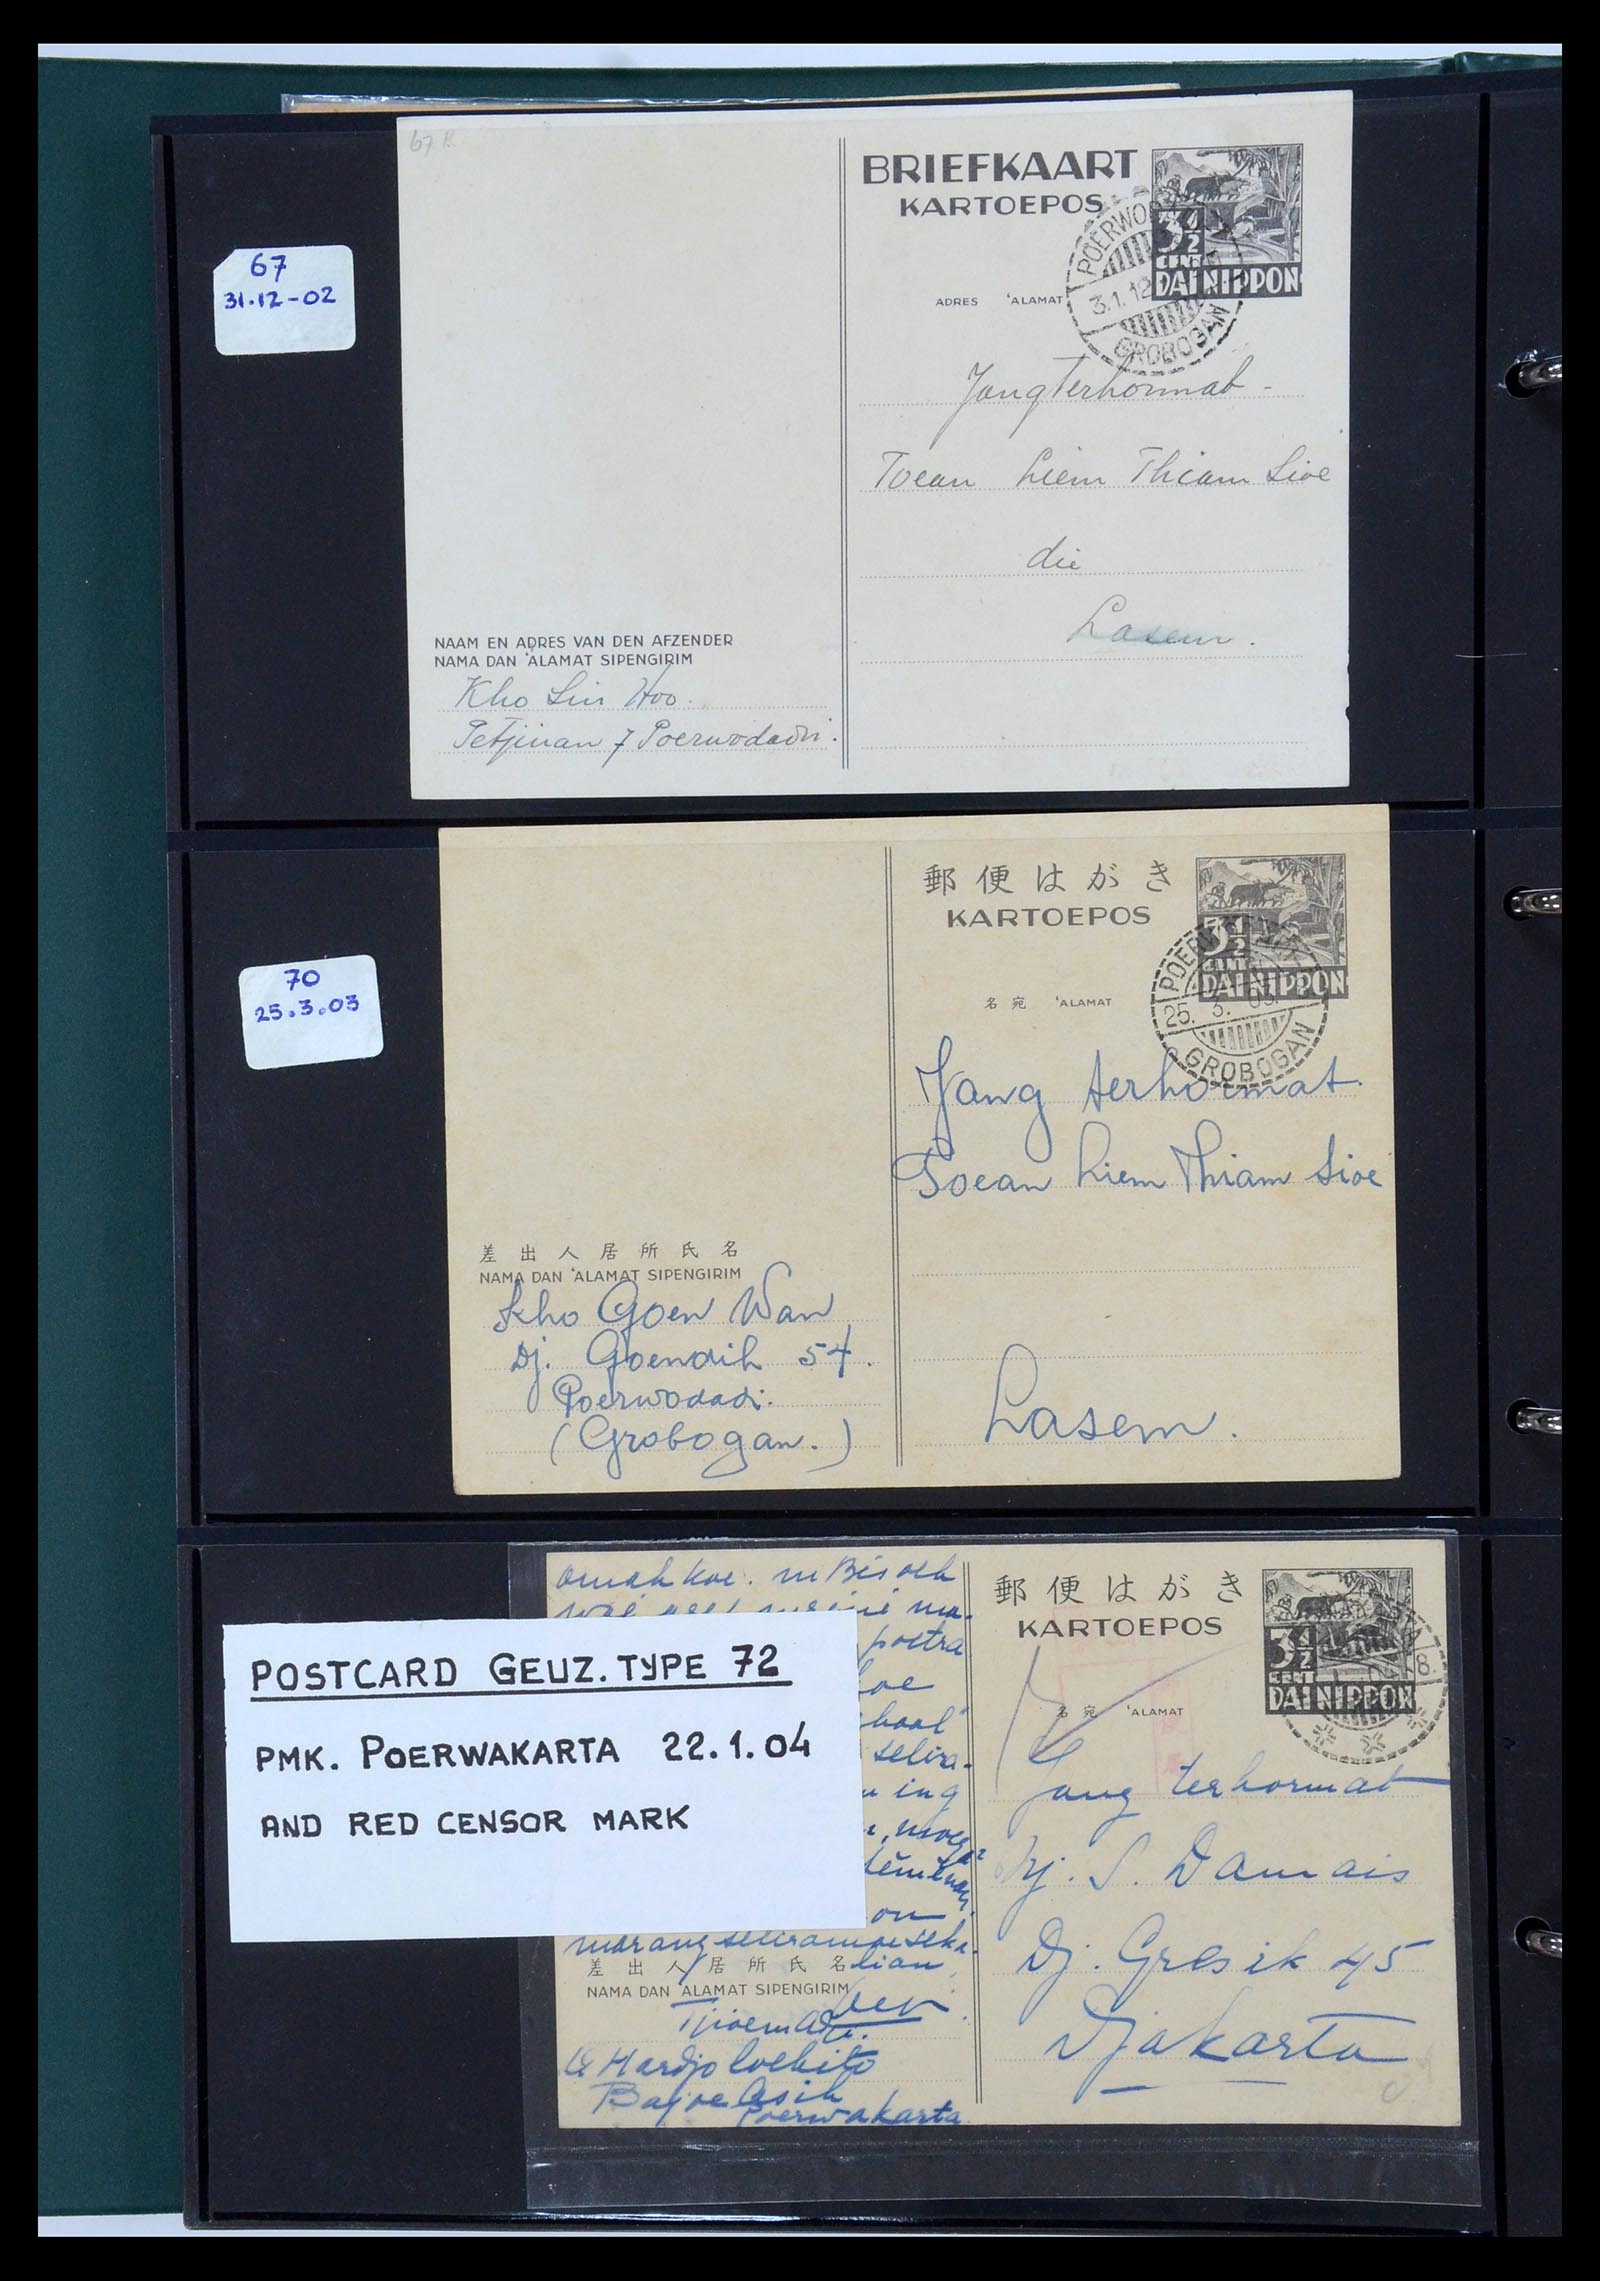 67 B.
BRIEFKAART
KARTOEPOS
3½
CENT
DAI NIPPON
POERWO
31.12
GROBOGAN
ADRES 'ALAMAT
67
31.12-02
Jang Terhormat -
Toean Liem Thiam Sioe
die
Lasem.
NAAM EN ADRES VAN DEN AFZENDER
NAMA DAN 'ALAMAT SIPENGIRIM
Kho Lin Hoo.
Petjinan 7 Poerwodadi.
郵便はがき
KARTOEPOS
3½
CENT
DAI NIPPON
POERW
25. 3. 03.
GROBOGAN
名宛 'ALAMAT
70
25.3.03
Jang terhormat.
Toean Liem Thiam Sioe
Lasem.
差出人居所氏名
NAMA DAN 'ALAMAT SIPENGIRIM
Kho Goen Wan
Dj. Goendih 54.
Poerwodadi.
(Grobogan.)
omah koe.
poetra
selira-
ing
on
差出人居所氏名
lian
NAMA DAN 'ALAMAT SIPENGIRIM
Hardjoloekito
Bajoe Asih
Poerwakarta
郵便はがき
KARTOEPOS
3½
CENT
DAI NIPPON
名宛 'ALAMAT
Jang terhormat
Nj. S. Damais
Dj. Gresik 45
Djakarta
POSTCARD GEUZ. TYPE 72
PMK. POERWAKARTA 22.1.04
AND RED CENSOR MARK